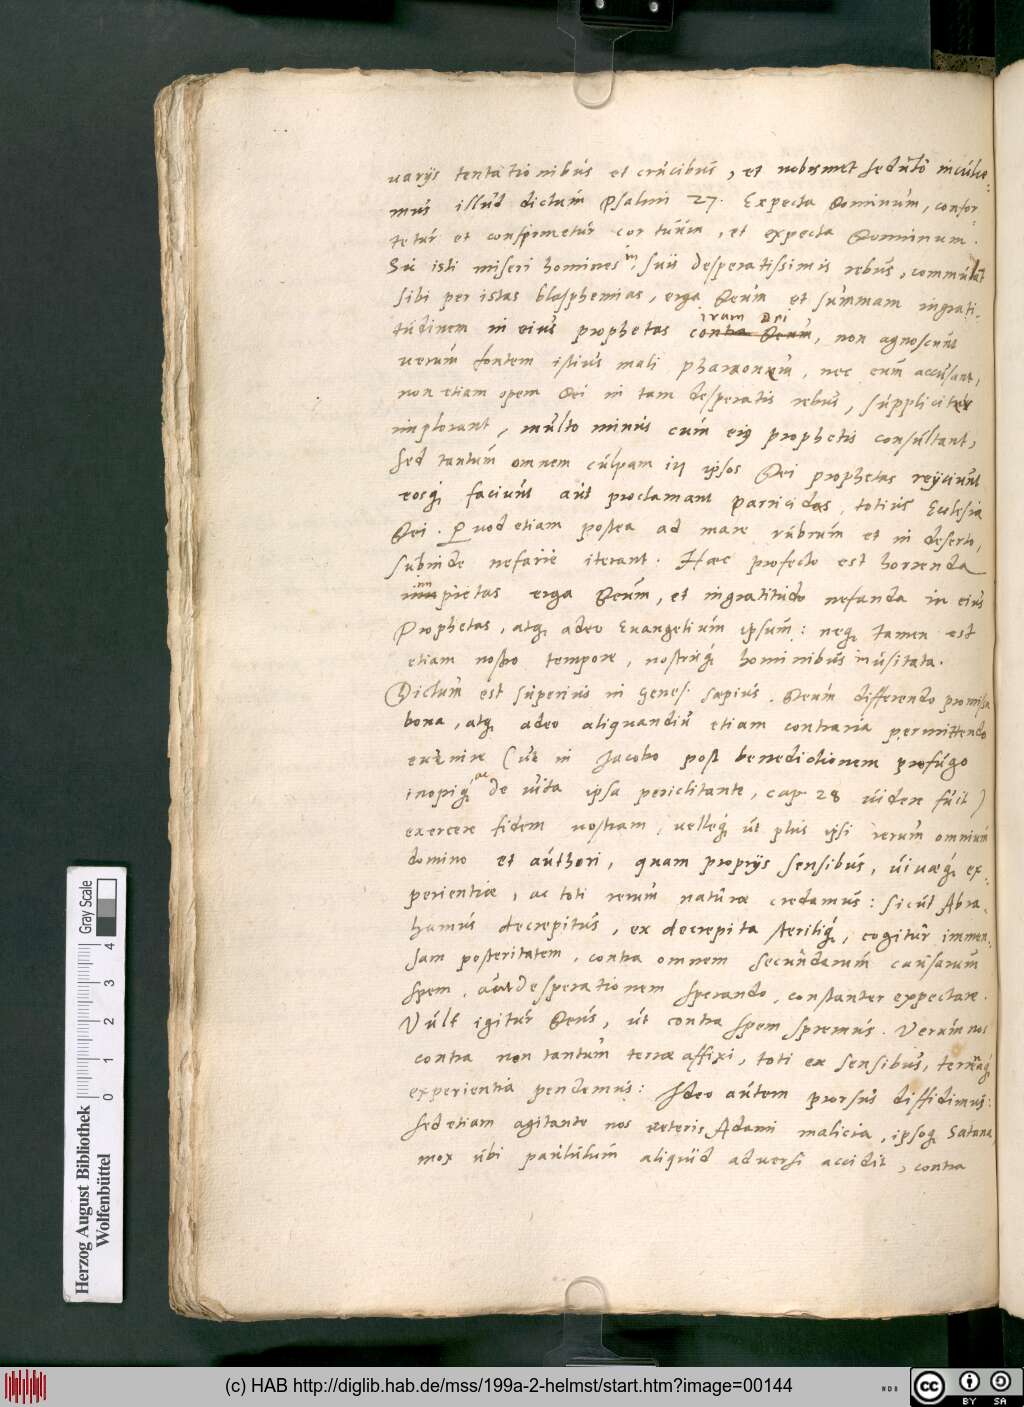 varijs tentationibus et crucibus, et nobismet sedulo inculce-
mus illud dictum Psalmi 27. Expecta Dominum, confor-
tetur et confirmetur cor tuum, et expecta Dominum.
Sic isti miseri homines in suis desperatissimis rebus,
sibi per istas blasphemias, erga Deum et summam ingrati-
tudinem in eius prophetas
iram Dei
contra Deum, non agnoscunt
verum fontem istius mali pharaonem, nec eum accusant,
non etiam opem Dei in tam desperatis rebus, suppliciter
implorant, multo minus cum eius prophetis consultant,
sed tantum omnem culpam in ipsos Dei prophetas reijciunt
eosq faciunt aut proclamant parricidas totius Ecclesiæ
Dei. Quod etiam postea ad mare rubrum et in deserto,
subinde nefarie iterant. Hæc profecto est horrenda
impietas erga Deum, et ingratitudo nefanda in eius
Prophetas, atq adeo Evangelium ipsum: neq tamen est
etiam nostro tempore, nostrisq hominibus inusitata.
Dictum est superius in Genes. sæpius, Deum differendo promissa
bona, atq adeo aliquandiu etiam contraria permittendo
evenire (ut in Jacobo post benedictionem profugo
inopiq ac de vita ipsa periclitante, cap 28 videre fuit)
exercere fidem nostram, velleq ut plus ipsi rerum omnium
domino et authori, quam proprijs sensibus, vivæq ex-
perientiæ, ac toti rerum naturæ credamus: sicut Abra-
hamus decrepitus, ex decrepita steriliq, cogitur immen-
sam posteritatem, contra omnem secundarum causarum
spem, aut desperationem sperando, constanter expectare.
Vult igitur Deus, ut contra spem speremus. Verum nos
contra non tantum terræ affixi, toti ex sensibus,
experientia pendemus: Ideo autem prorsus diffidimus:
sed etiam agitante nos veteris Adami malicia, ipsoq Satana,
mox ubi paululum aliquid adversi accidit, contra
Herzog August Bibliothek
Wolfenbüttel
Gray Scale
0 1 2 3 4
(c) HAB http://diglib.hab.de/mss/199a-2-helmst/start.htm?image=00144
cc BY SA